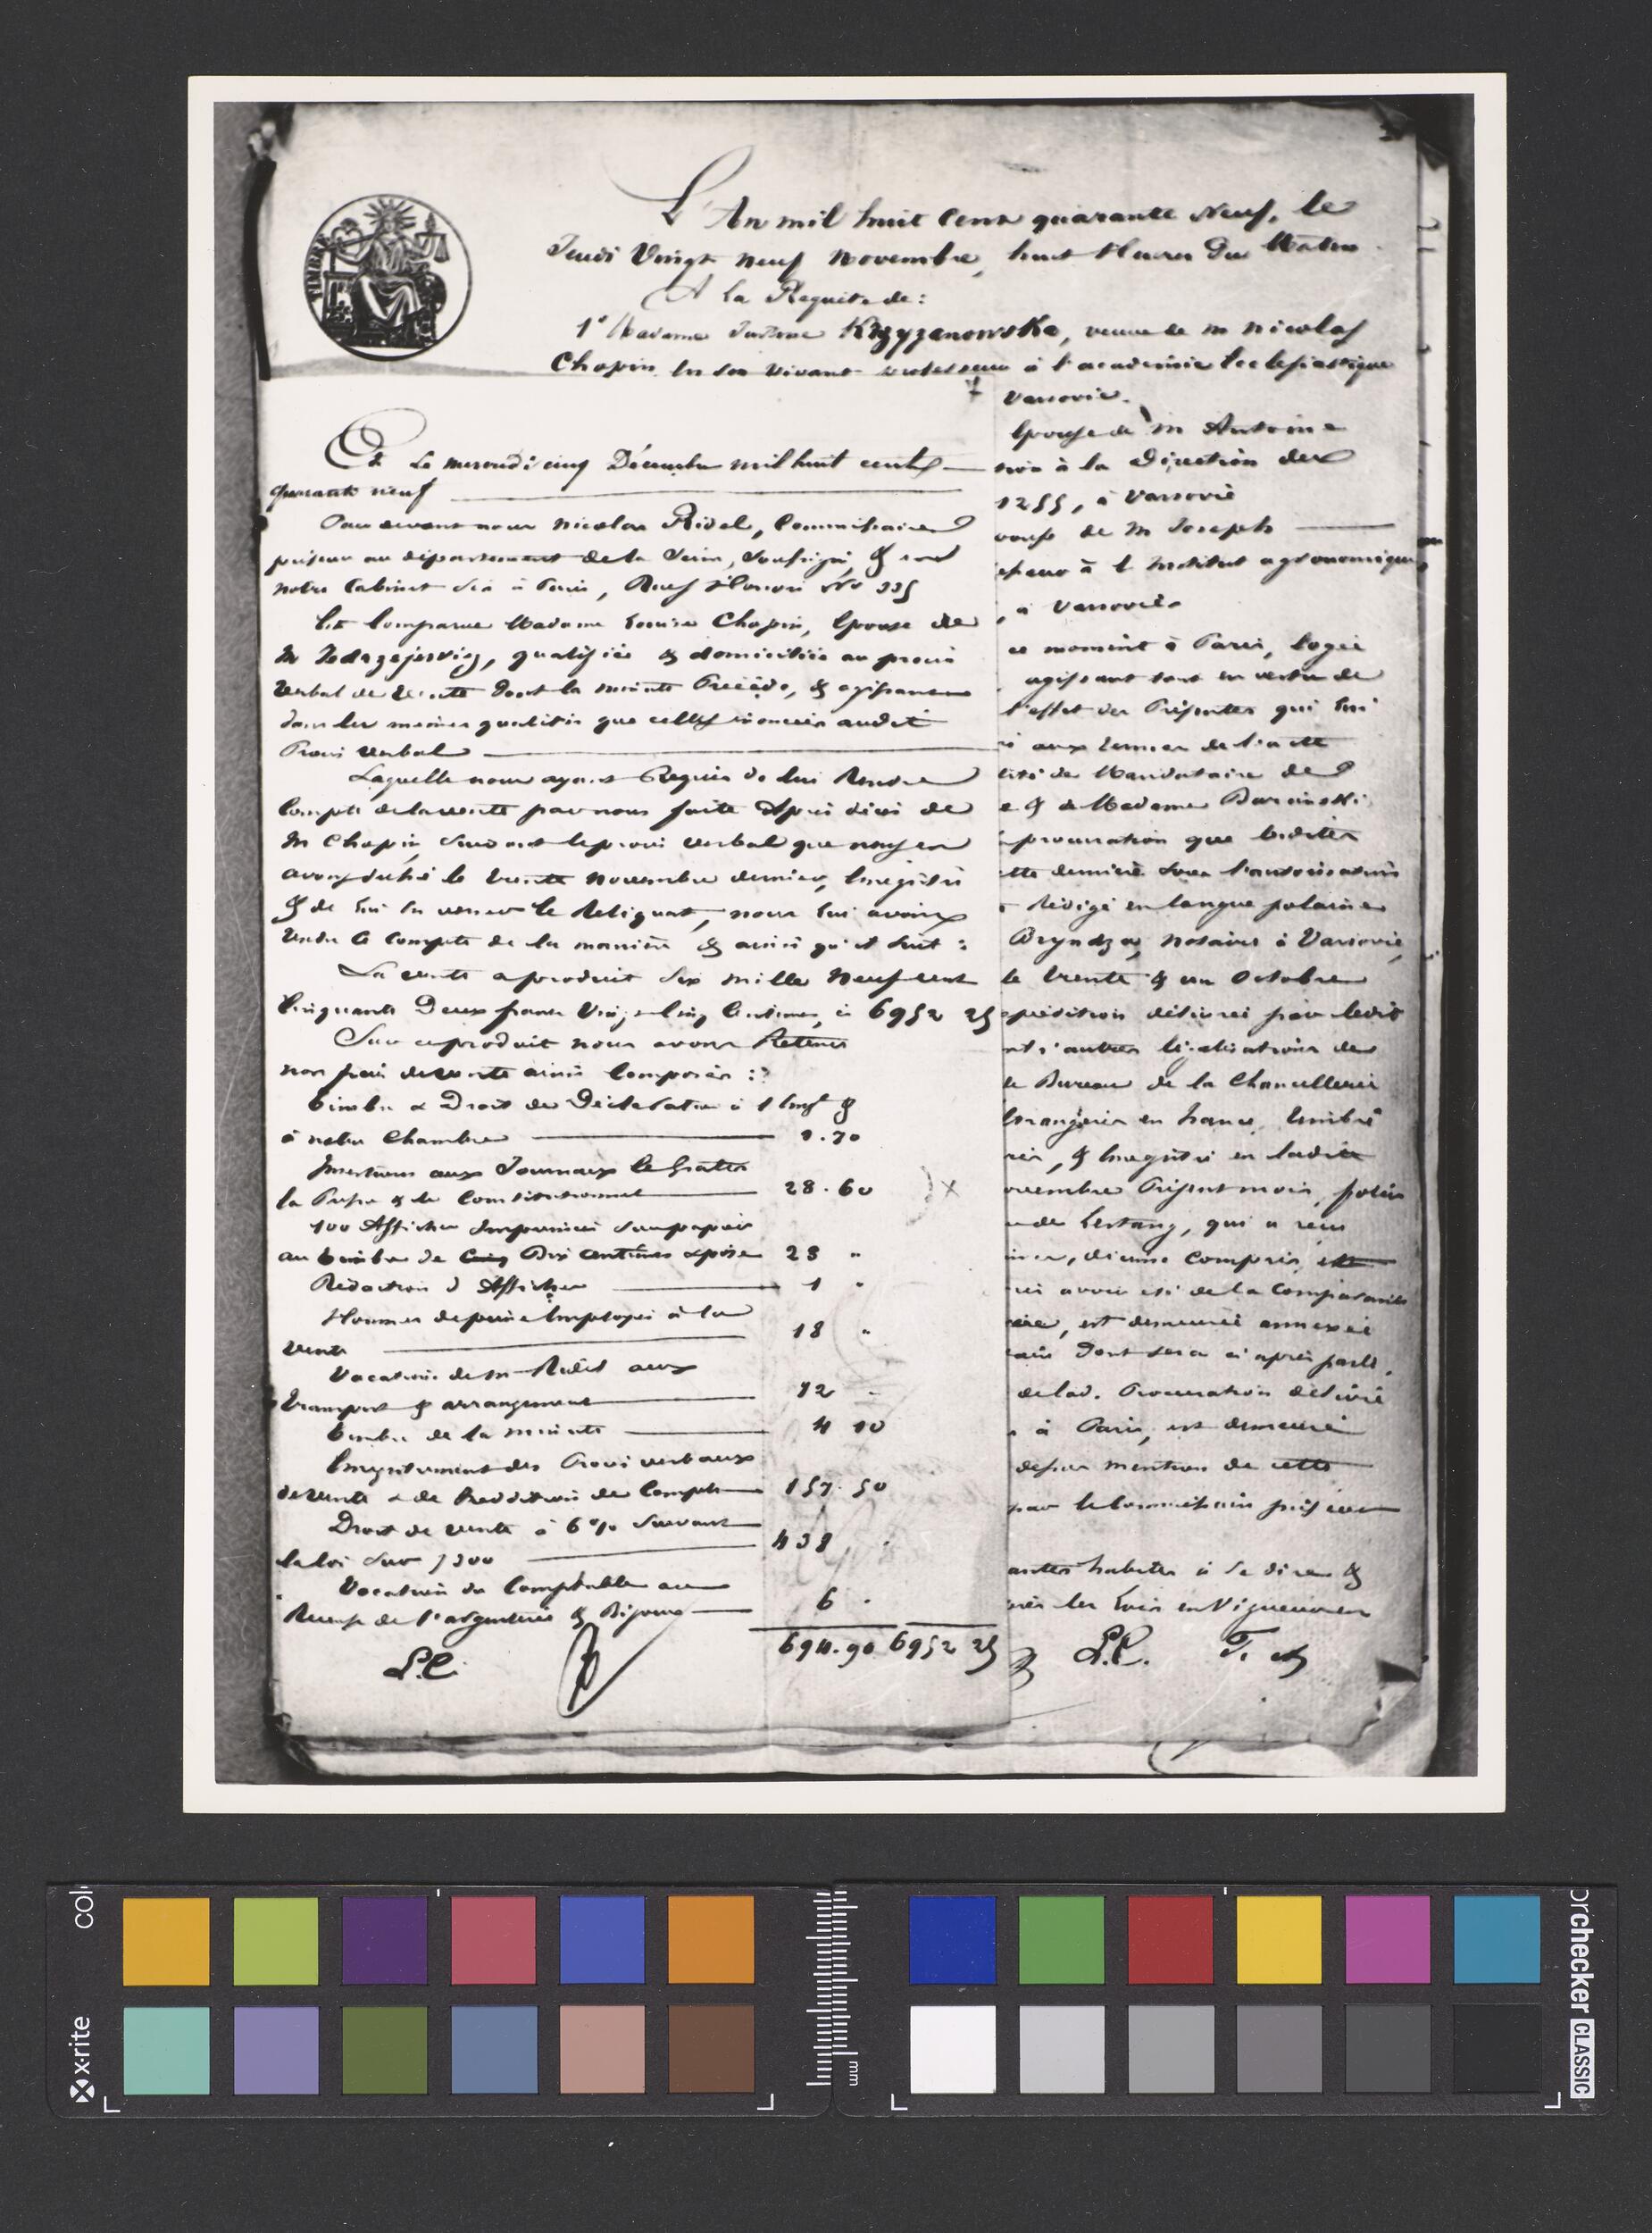 TIMBRE
L'An mil huit cent quarante Neuf, le
Jeudi Vingt neuf Novembre, huit Heures du Matin
A la Requête de:
1º Madame Justine Krzyzanowska, veuve de M Nicolas
Chopin, en son vivant professeur à l'académie Ecclésiastique
Varsovie.
Epouse de M Antoine
Et le mercredi cinq Décembre mil huit cent
quarante neuf
Par devant nous Nicolas Ridel, Commissaire
priseur au département de la Seine, soussigné, & en
notre Cabinet sis à Paris, Rue St Honoré No 335
Est Comparue Madame Louise Chopin, Epouse de
M Jedrzejewicz, qualifiée & domiciliée au procès
verbal de vente dont la minute Précède, & agissant
dans les mêmes qualités que celles énoncées audit
Procès verbal
Laquelle nous ayant Requis de lui Rendre
Compte de la vente par nous faite après décès de
M Chopin, suivant le procès verbal que nous en
avons dressé le trente novembre dernier, Enregistré
& de lui en verser le Reliquat, nous lui avons
rendu ce compte de la manière & ainsi qu'il suit:
La vente a produit Six mille Neuf cent
Cinquante Deux francs Vingt Cinq Centimes, ci 6952 25
Sur ce produit nous avons Retenu
nos frais de vente ainsi Composés:
Timbre & Droit de Déclaration à l'Enregt &
à notre Chambre 1.70
Insertions aux Journaux
la Presse & le Constitutionnel 28.60
100 Affiches Imprimées sur papier
au timbre de Cinq Dix Centimes & pose 28 "
Rédaction d'Affiches 1 "
Hommes de peine Employés à la
vente 18 "
Vacation de M Ridel aux
transport & arrangement 12
timbre de la minute 4 10
Enregistrement des Procès verbaux
de vente & de Reddition de Compte 157.50
Droit de vente à 6% suivant
la loi sur 7300 438
Vacation du Comptable au
de l'argenterie & Bijoux 6
694.90 6952 25
L.C.
sion à la Direction des
1255, à Varsovie
épouse de M Joseph
à l'Institut agronomique
à Varsovie
ce moment à Paris, logée
agissant tant en vertu de
l'effet des Présentes qui lui
aux termes de l'acte
lité de Mandataire de
e & de Madame Barcinska
procuration que lesdites
ette dernière sous l'autorisation
Rédigé en langue polonaise
Bryndza, notaire à Varsovie,
le trente & un Octobre
expédition délivrée par ledit
autres légalisations de
le Bureau de la Chancellerie
Etrangères en france, timbré
& Enregistré en ladite
novembre Présent mois, folio
de Lestang, qui a reçu
décime compris
de la Comparante
est demeurée annexée
Dont sera ci après parlé,
de lad. Procuration délivré
à Paris, est demeuré
mention de cette
par le Commissaire priseur
autres habiles à se dire &
les lois en Vigueur en
L.C.
x-rite
colorchecker CLASSIC
mm